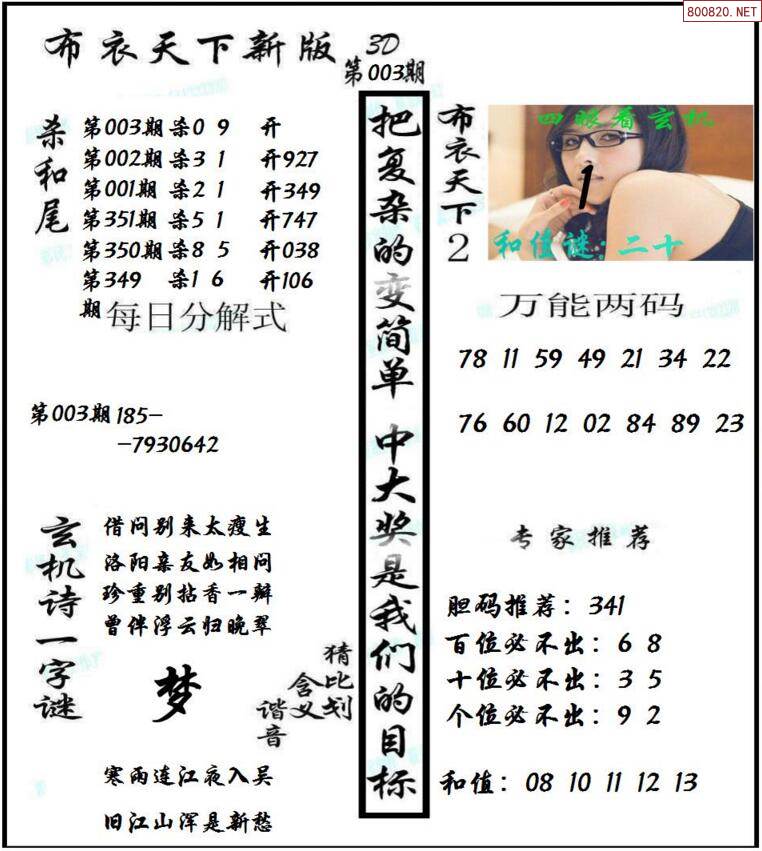 800820.NET
布衣天下新版 3D
第003期
杀和尾
第003期 杀0 9 开
第002期 杀3 1 开927
第001期 杀2 1 开349
第351期 杀5 1 开747
第350期 杀8 5 开038
第349期 杀1 6 开106
每日分解式
第003期 185-
-7930642
玄机诗一字谜
借问别来太瘦生
洛阳亲友如相问
珍重别拈香一瓣
曾伴浮云归晚翠
梦
猜比划
含义
谐音
寒雨连江夜入吴
旧江山浑是新愁
把复杂的变简单 中大奖是我们的目标
布衣天下2
四眼看玄机
1
和值谜:二十
万能两码
78 11 59 49 21 34 22
76 60 12 02 84 89 23
专家推荐
胆码推荐:341
百位必不出:6 8
十位必不出:3 5
个位必不出:9 2
和值:08 10 11 12 13